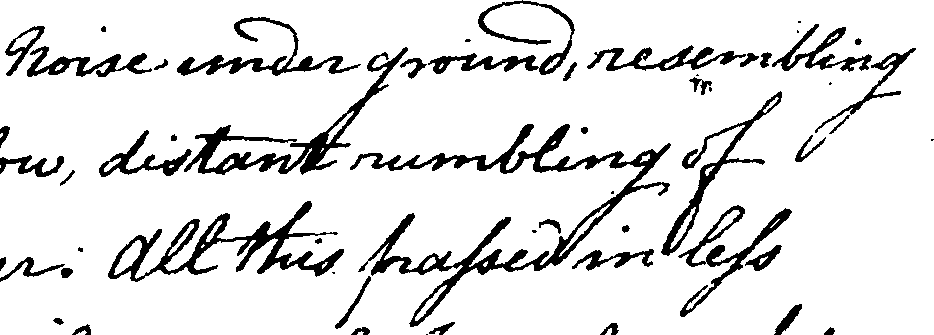 Noise under ground, resembling
ow, distant rumbling of
er: All this paſsed in leſs